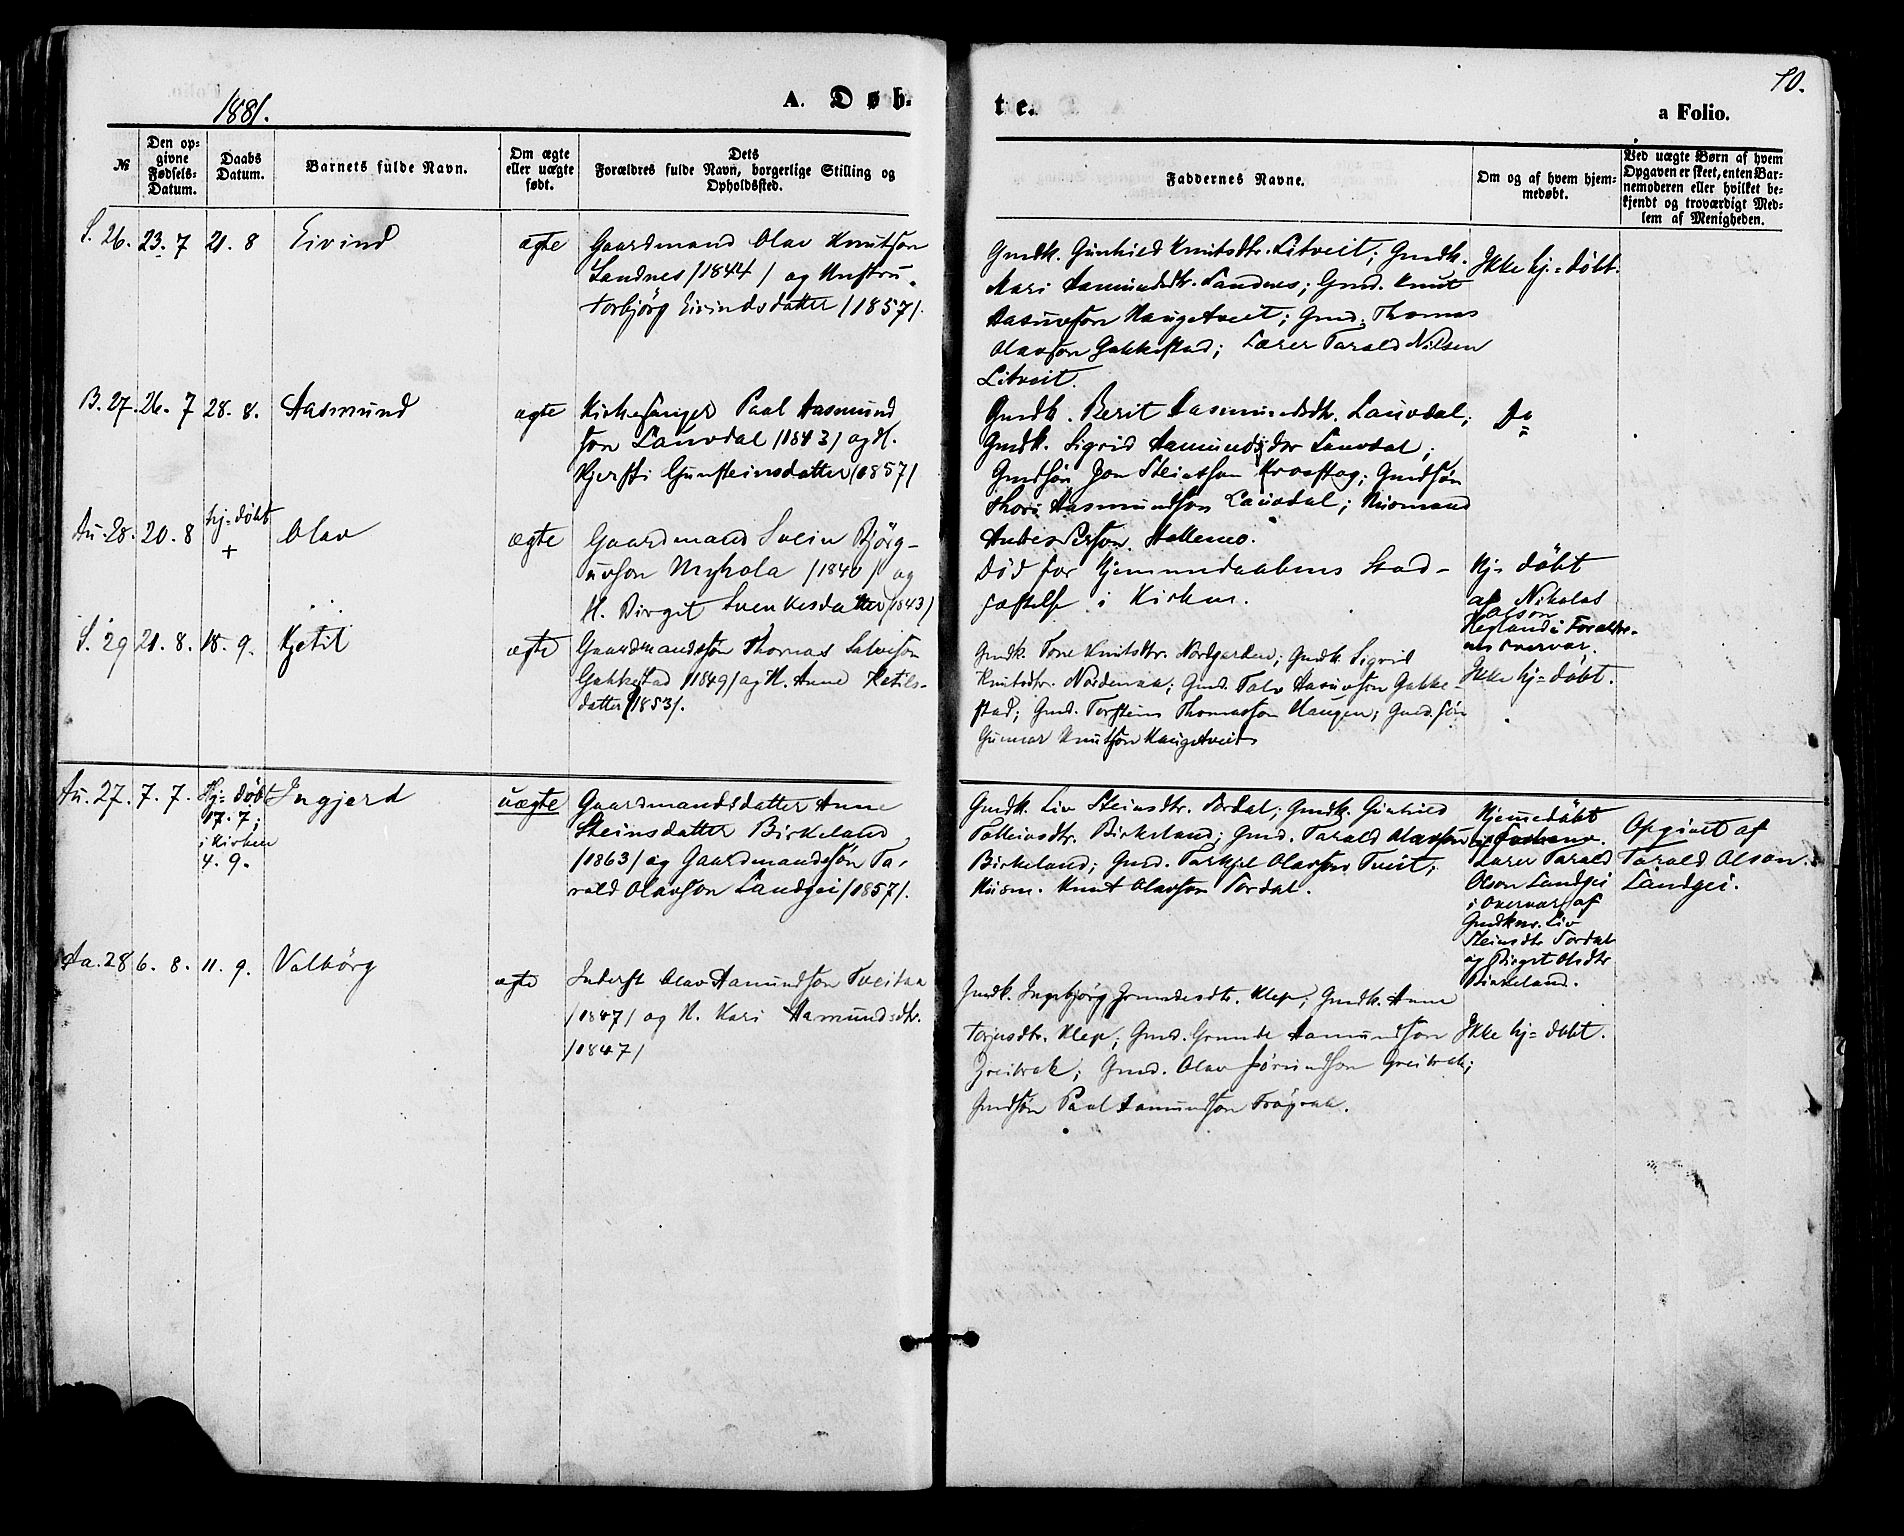 1881.
A. Døb-
te.
10.
a Folio.
№
Den op-
givne
Fødsels-
Datum.
Daabs
Datum.
Barnets fulde Navn.
Om ægte
eller uægte
født.
Dets
Forældres fulde Navn, borgerlige Stilling og
Opholdssted.
Faddernes Navne.
Om og af hvem hjem-
medøbt.
Ved uægte Børn af hvem
Opgaven er skeet, enten Bar-
nemoderen eller hvilket be-
kjendt og troværdigt Med-
lem af Menigheden.
S. 26. 23. 7 21. 8 Eivind ægte
Gaardmand Olav Knutson
Sandnes /1844/ og Hustru
Torbjörg Eivindsdatter /1857/.
Gmdk. Gunhild Knutsdtr. Litveit; Gmdk.
Mari Aamundsdtr. Sandnes; Gmd. Knut
Aasuvson Haugetveit; Gmd. Thomas
Olavson Gakkestad; Lærer Tarald Nilsen
Litveit.
Ikke hj=døbt.
B. 27. 26. 7 28. 8. Aasmund ægte
Kirkesanger Paal Aasmund
son Lauvdal /1843/ og H.
Kjersti Gunsteinsdatter /1857/
Gmdk. Berit Aasmundsdtr. Lauvdal;
Gmdk. Sigrid Aamundsdtr Lauvdal;
Gmdsön Jon Steinsson; Gmdsön
Thore Aasmundson Lauvdal; Husmand
Anders Person.
Do
Au. 28. 20. 8 hj=døbt
+
Olav ægte
Gaardmand Svein Björg-
uvson /1840/ og
H. Birget Svenkesdatter /1843/
Död før Hjemmedaabens Stad-
fæstelse i Kirken.
Hj=döbt
af Nikolas
Olson
Hegland i Forældre-
nes Overvær.
S. 29 21. 8. 18. 9. Kjetil ægte
Gaardmandssön Thomas Salveson
Gakkestad /1849/ og H. Anne Ketils-
datter /1853/.
Gmdk. Tone Knutsdtr. Nordgarden; Gmdk. Sigrid
Knutsdtr. Nordenaa; Gmd. Talv Aasuvson Gakke-
stad; Gmd. Torstein Thomasson Haugen; Gmd.sön
Gunnar Knutson Haugetveit
Ikke hj=døbt.
Au. 27. 7. 7. Hj=døbt
17. 7;
i Kirken
4. 9.
Ingjerd uægte
Gaardmandsdatter Anne
Steinsdatter Birkeland
/1863/ og Gaardmandssön Ta-
rald Olavson Landgei /1857/.
Gmdk. Liv Steinsdtr. Tordal; Gmdk. Gunhild
Talleivsdtr. Birkeland; Gmd. Tarald Olavson
Birkeland; Gmd. Tarkjel Olavson Tveit;
Husm. Knut Olavson Tordal.
Hjemmedöbt
Lærer Tarald
Olson Landgei
i Overvær af
Gmdkne. Liv
Steinsdtr Tordal
og Birget Olsdtr
Birkeland.
Opgivet af
Tarald Olson
Landgei.
Aa. 28 6. 8. 11. 9. Valbörg ægte
Inderst Olav Aamundson Tveitaa
/1847/ og H. Kari Aamundsdtr.
/1847/
Gmdk. Ingebjörg Grundesdtr. Klep; Gmdk. Anne
Torjusdtr. Klep; Gmd. Grunde Aamundson
Greibrok; Gmd. Olav Jörundson Greibrok;
Gmdsön Paal Aamundson
Ikke hj=døbt.